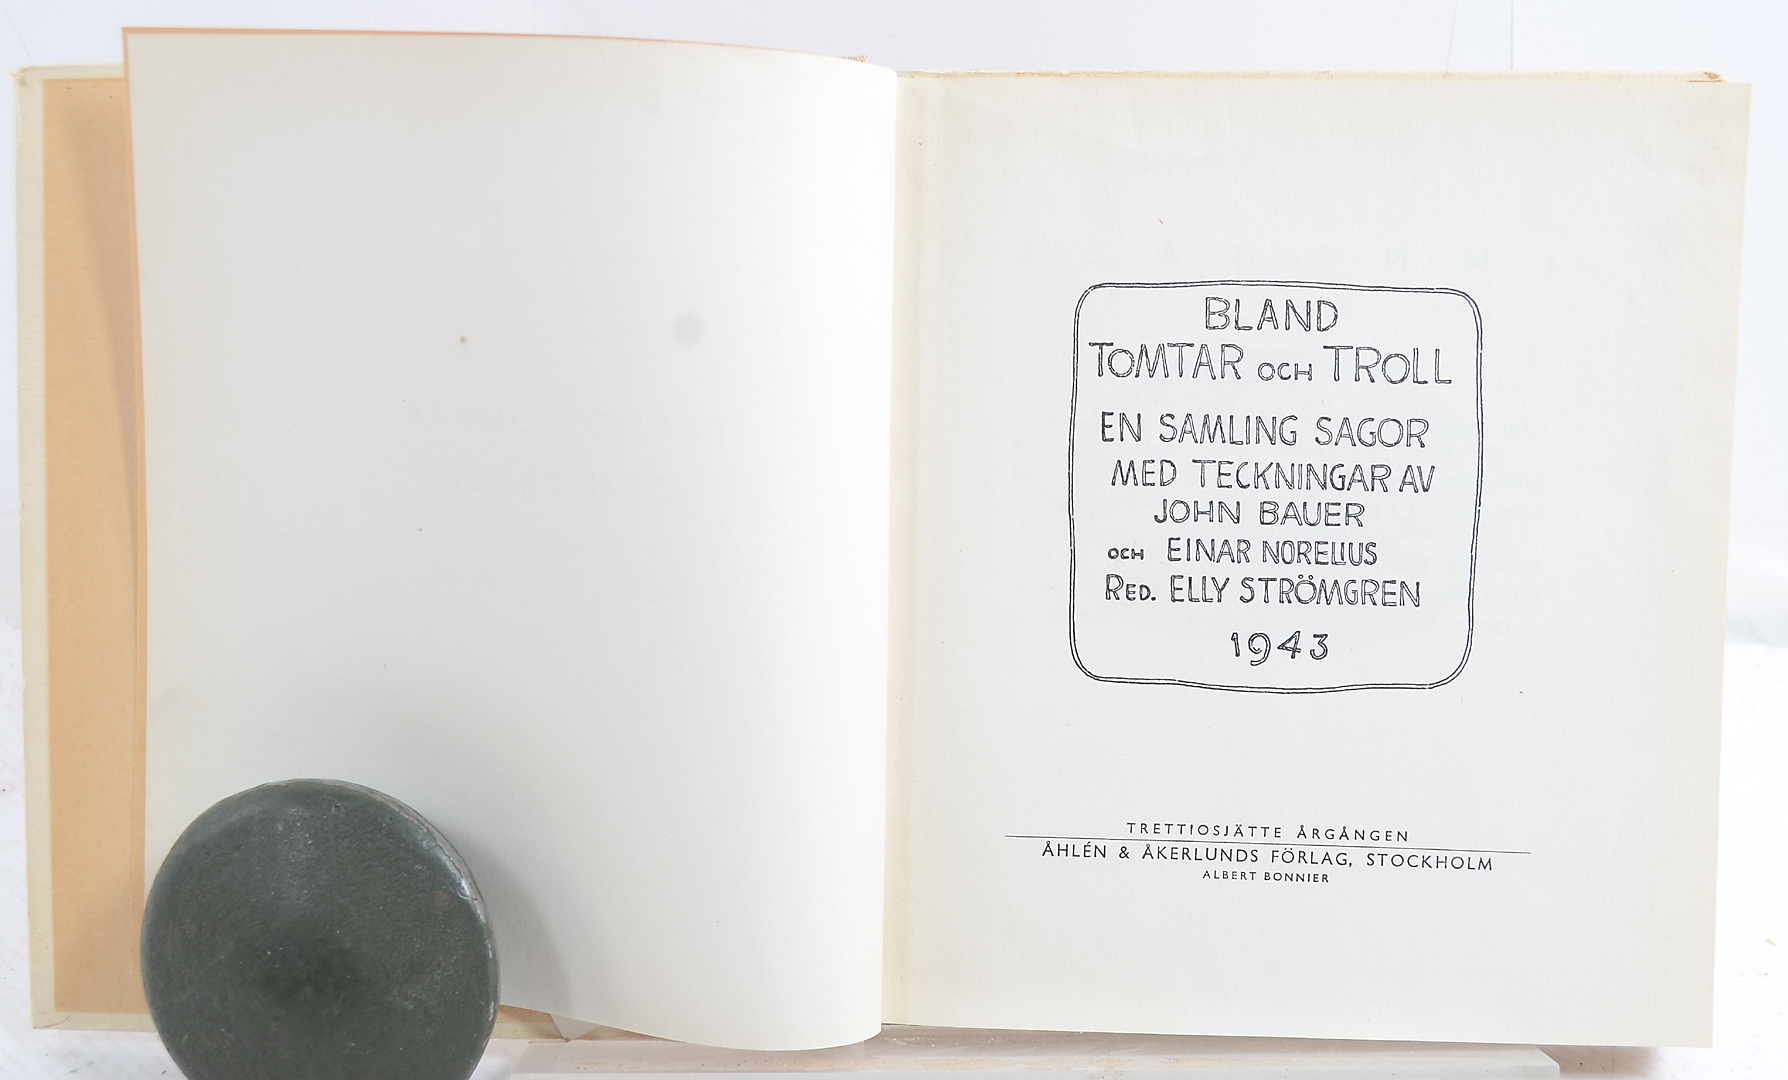 BLAND
TOMTAR OCH TROLL
EN SAMLING SAGOR
MED TECKNINGAR AV
JOHN BAUER
OCH EINAR NORELIUS
RED. ELLY STRÖMGREN
1943
TRETTIOSJÄTTE ÅRGÅNGEN
ÅHLÉN & ÅKERLUNDS FÖRLAG, STOCKHOLM
ALBERT BONNIER